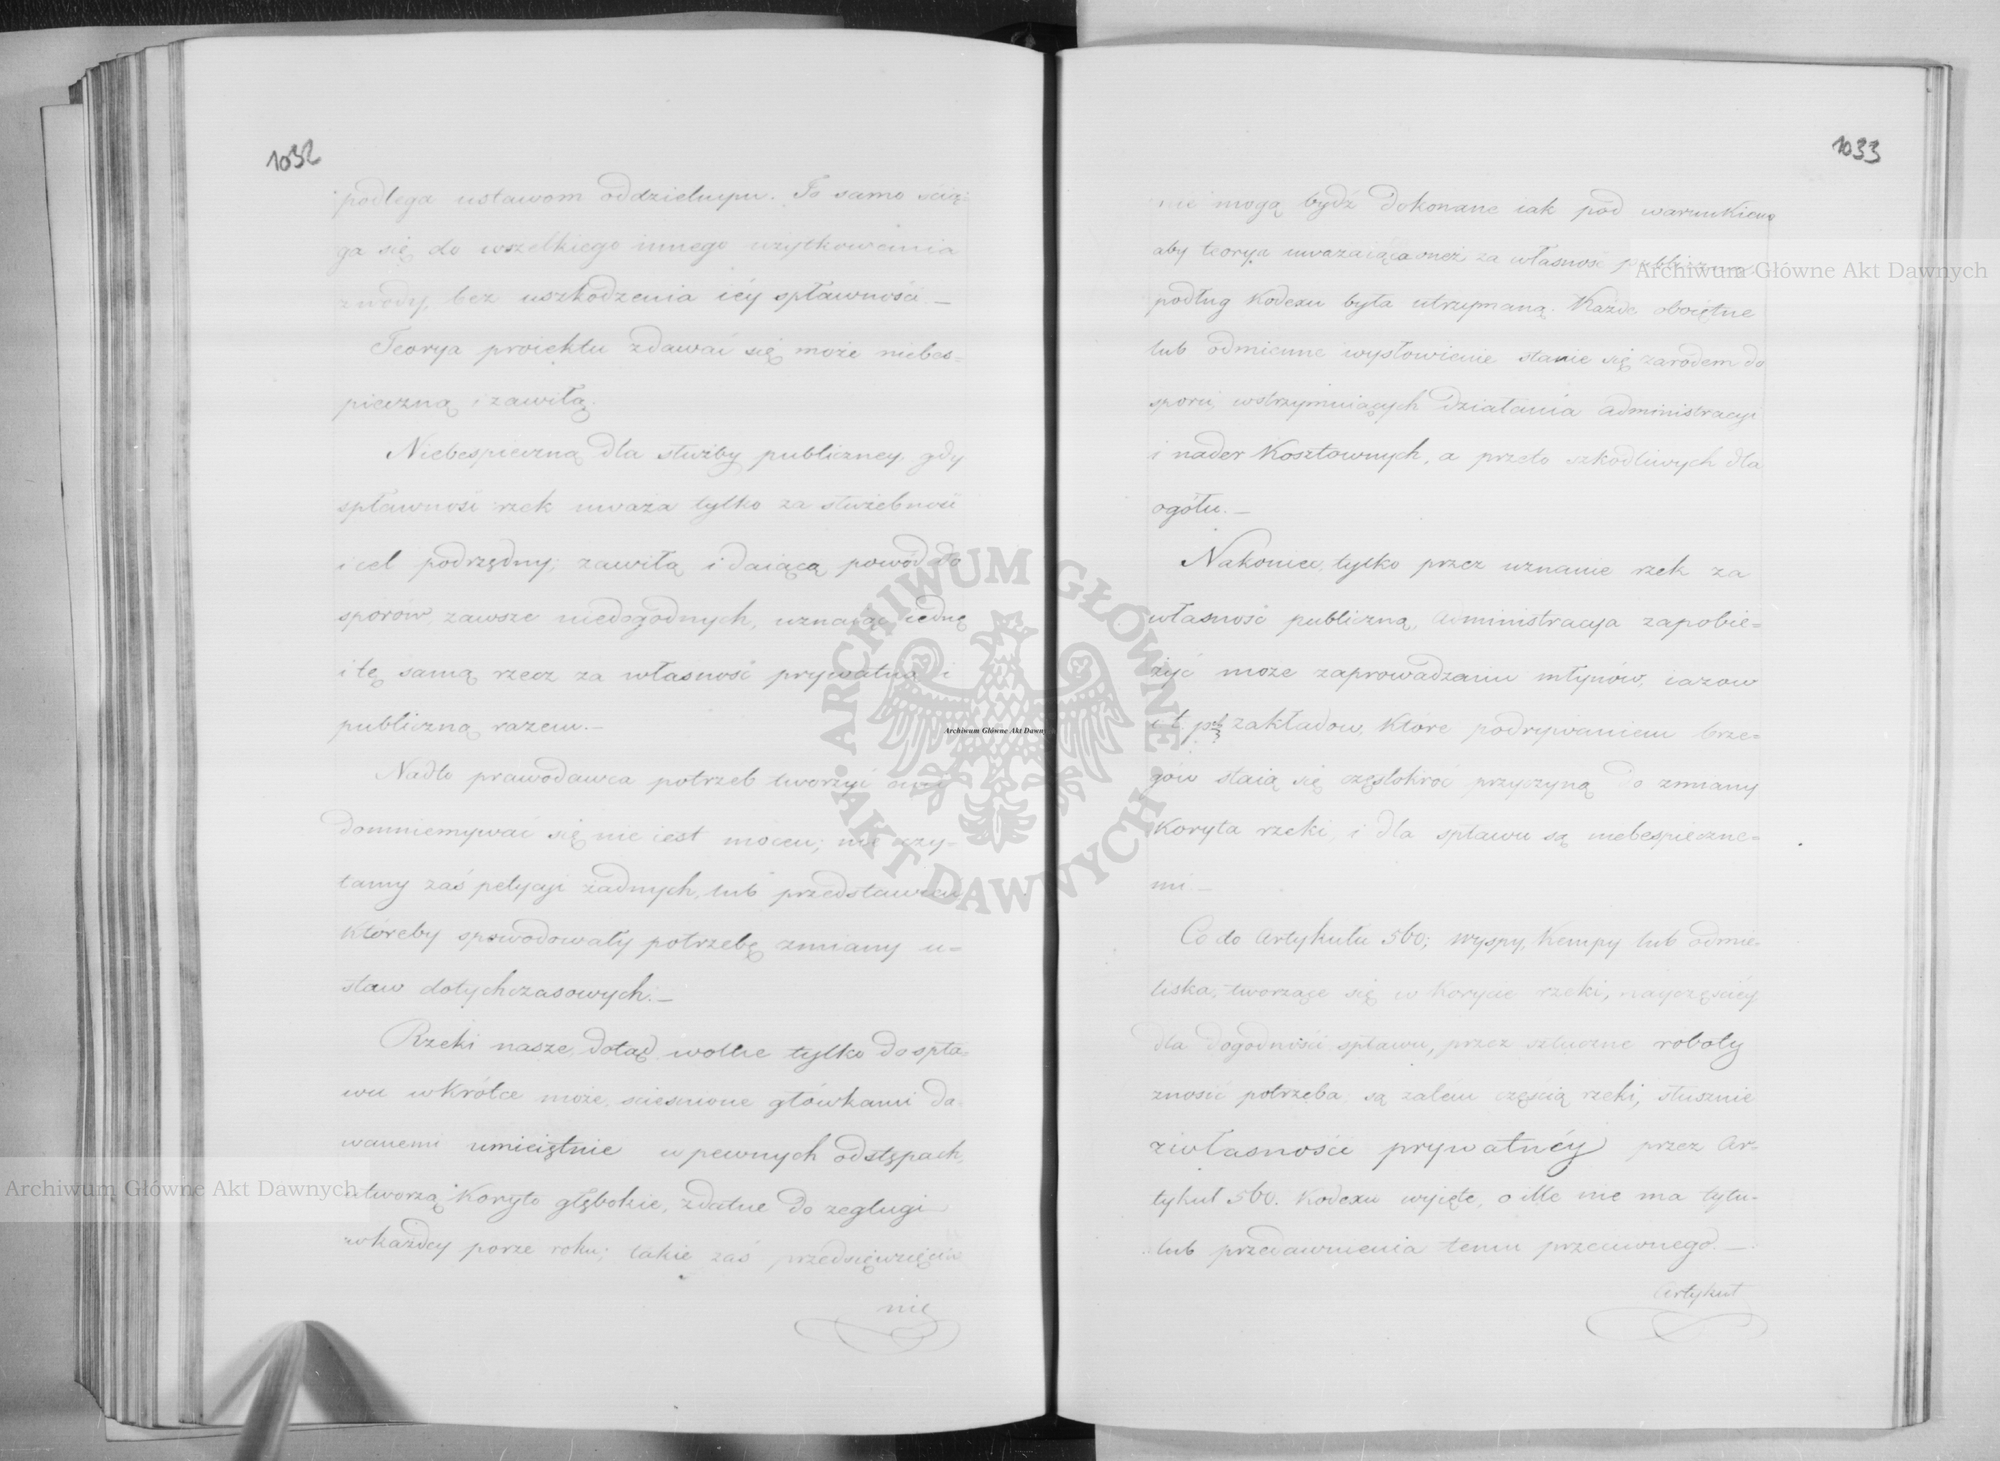 1032
podlega ustawom oddzielnym. To samo ścią-
ga się do wszelkiego innego użytkowania
z wody, bez uszkodzenia iéy spławności. —
Teorya proiektu zdawać się może niebes-
pieczną i zawiłą.
Niebespieczną dla służby publiczney, gdy
spławność rzek uważa tylko za służebność
i cel podrzędny; zawiłą i daiącą powód do
sporów, zawsze niedogodnych, uznaiąc iednę
i tę samą rzecz za własność prywatną i
publiczną razem. —
Nadto prawodawca potrzeb tworzyć ani
domniemywać się nie iest mocen; nie czy-
tamy zaś petycyi żadnych, lub przedstawień
któreby spowodowały potrzebę zmiany u-
staw dotychczasowych. —
Rzeki nasze, dotąd wolne tylko do spła-
wu wkrótce może, ściesnione główkami da-
wanemi umieiętnie w pewnych odstępach,
utworzą koryto głębokie, zdatne do żeglugi
w każdey porze roku; takie zaś przedsięwzięcia
nie
1033
nie mogą bydź dokonane iak pod warunkiem
aby teorya uważaiąca oneż za własność publiczną
podług Kodexu była utrzymaną. Każde oboiętne
lub odmienne wysłowienie stanie się zarodem do
sporu, wstrzymuiących działania administracyi
i nader kosztownych, a przeto szkodliwych dla
ogółu. —
Nakoniec, tylko przez uznanie rzek za
własność publiczną, administracya zapobie-
żyć może zaprowadzaniu młynów, iazow
i t. p. zakładow, które podrywaniem brze-
gów staią się częstokroć przyczyną do zmiany
koryta rzeki, i dla spławu są niebespieczne-
mi. —
Co do Artykułu 560; wyspy, kempy lub odmie-
liska, tworzące się w korycie rzeki, nayczęściey
dla dogodności spławu, przez sztuczne roboty
znosić potrzeba są zatém częścią rzeki, słusznie
z własności prywatnéy przez Ar-
tykuł 560. Kodexu wyięte, o ile nie ma tytu-
lub przedawnienia temu przeciwnego. —
Artykuł
Archiwum Główne Akt Dawnych
Archiwum Główne Akt Dawnych
ARCHIWUM GŁÓWNE · AKT DAWNYCH ·
Archiwum Główne Akt Dawnych